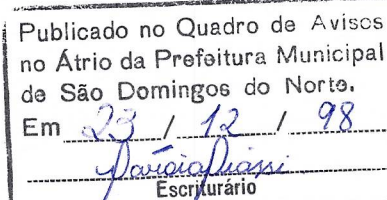 Publicado no Quadro de Avisos
no Átrio da Prefeitura Municipal
de São Domingos do Norte.
Em 23 / 12 / 98
Escriturário